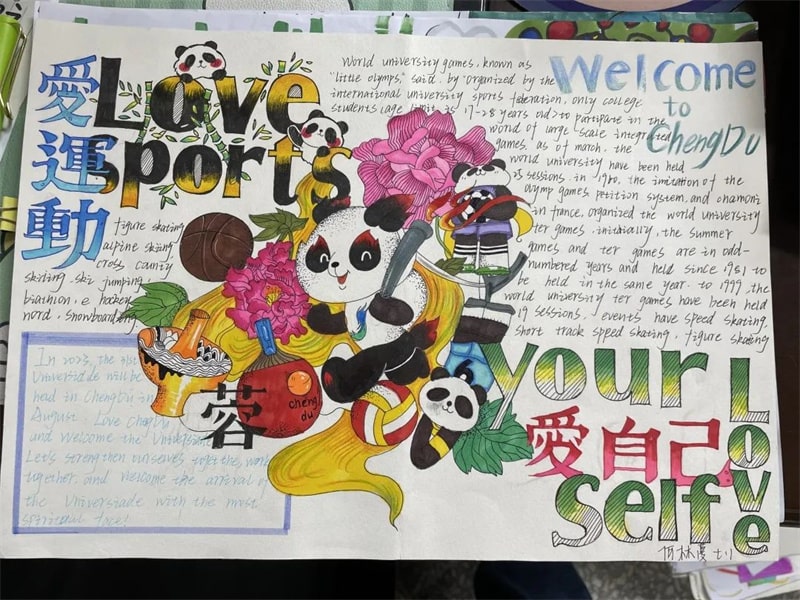 愛運動
Love
sports
Welcome
to
ChengDu
World university games, known as
"little olymps," said. by "organized by the
international university sports federation, only college
students (age limit is 17-28 years old) to partipate in the
world of large scale integrated
games. as of march, the
world university have been held
sessions. in 1960, the imitation of the
olymp games petition system, and chamoni
in france, organized the world university
ter games. initially, the summer
games and ter games are in odd-
numbered years and held since 1981 to
be held in the same year. to 1999, the
world university ter games have been held
19 sessions. events have speed skating.
short track speed skating, figure skating
figure skating
alpine skiing
cross county
skiing. ski jumping
biathlon, e hockey
nord, snowboarding
In 2023, the 31st
Universiade will be
held in ChengDu in
August. Love ChengDu
and welcome the Universiade
Let's strengthen ourselves together, work
together, and welcome the arrival of
the Universiade with the most
spiritual face!
蓉
cheng
du
your
Love
愛自己
self